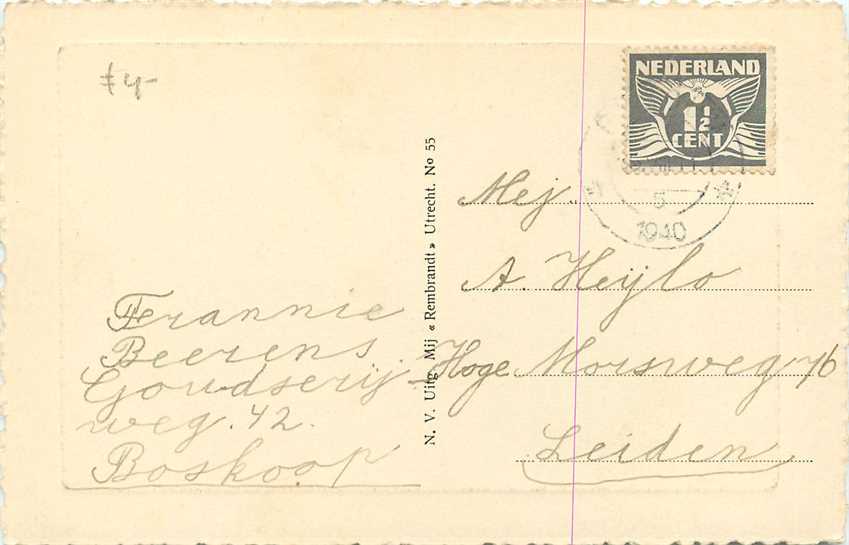 NEDERLAND
1½
CENT
5
1940
N. V. Uitg Mij « Rembrandt » Utrecht. No 55
Mej.
A. Heijlo
Hoge Morsweg 76
Leiden
Frannie
Beerens.
Goudserij-
weg. 42.
Boskoop